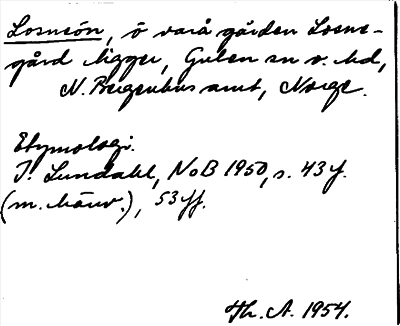 Losneön, ö varå gården Losne-
gård ligger, Gulen sn v. Hd,
N. Bergenhus amt, Norge.
Etymologi.
I. Lundahl, NoB 1950, s. 43 f.
(m. hänv.), 53 ff.
Th. A. 1954.